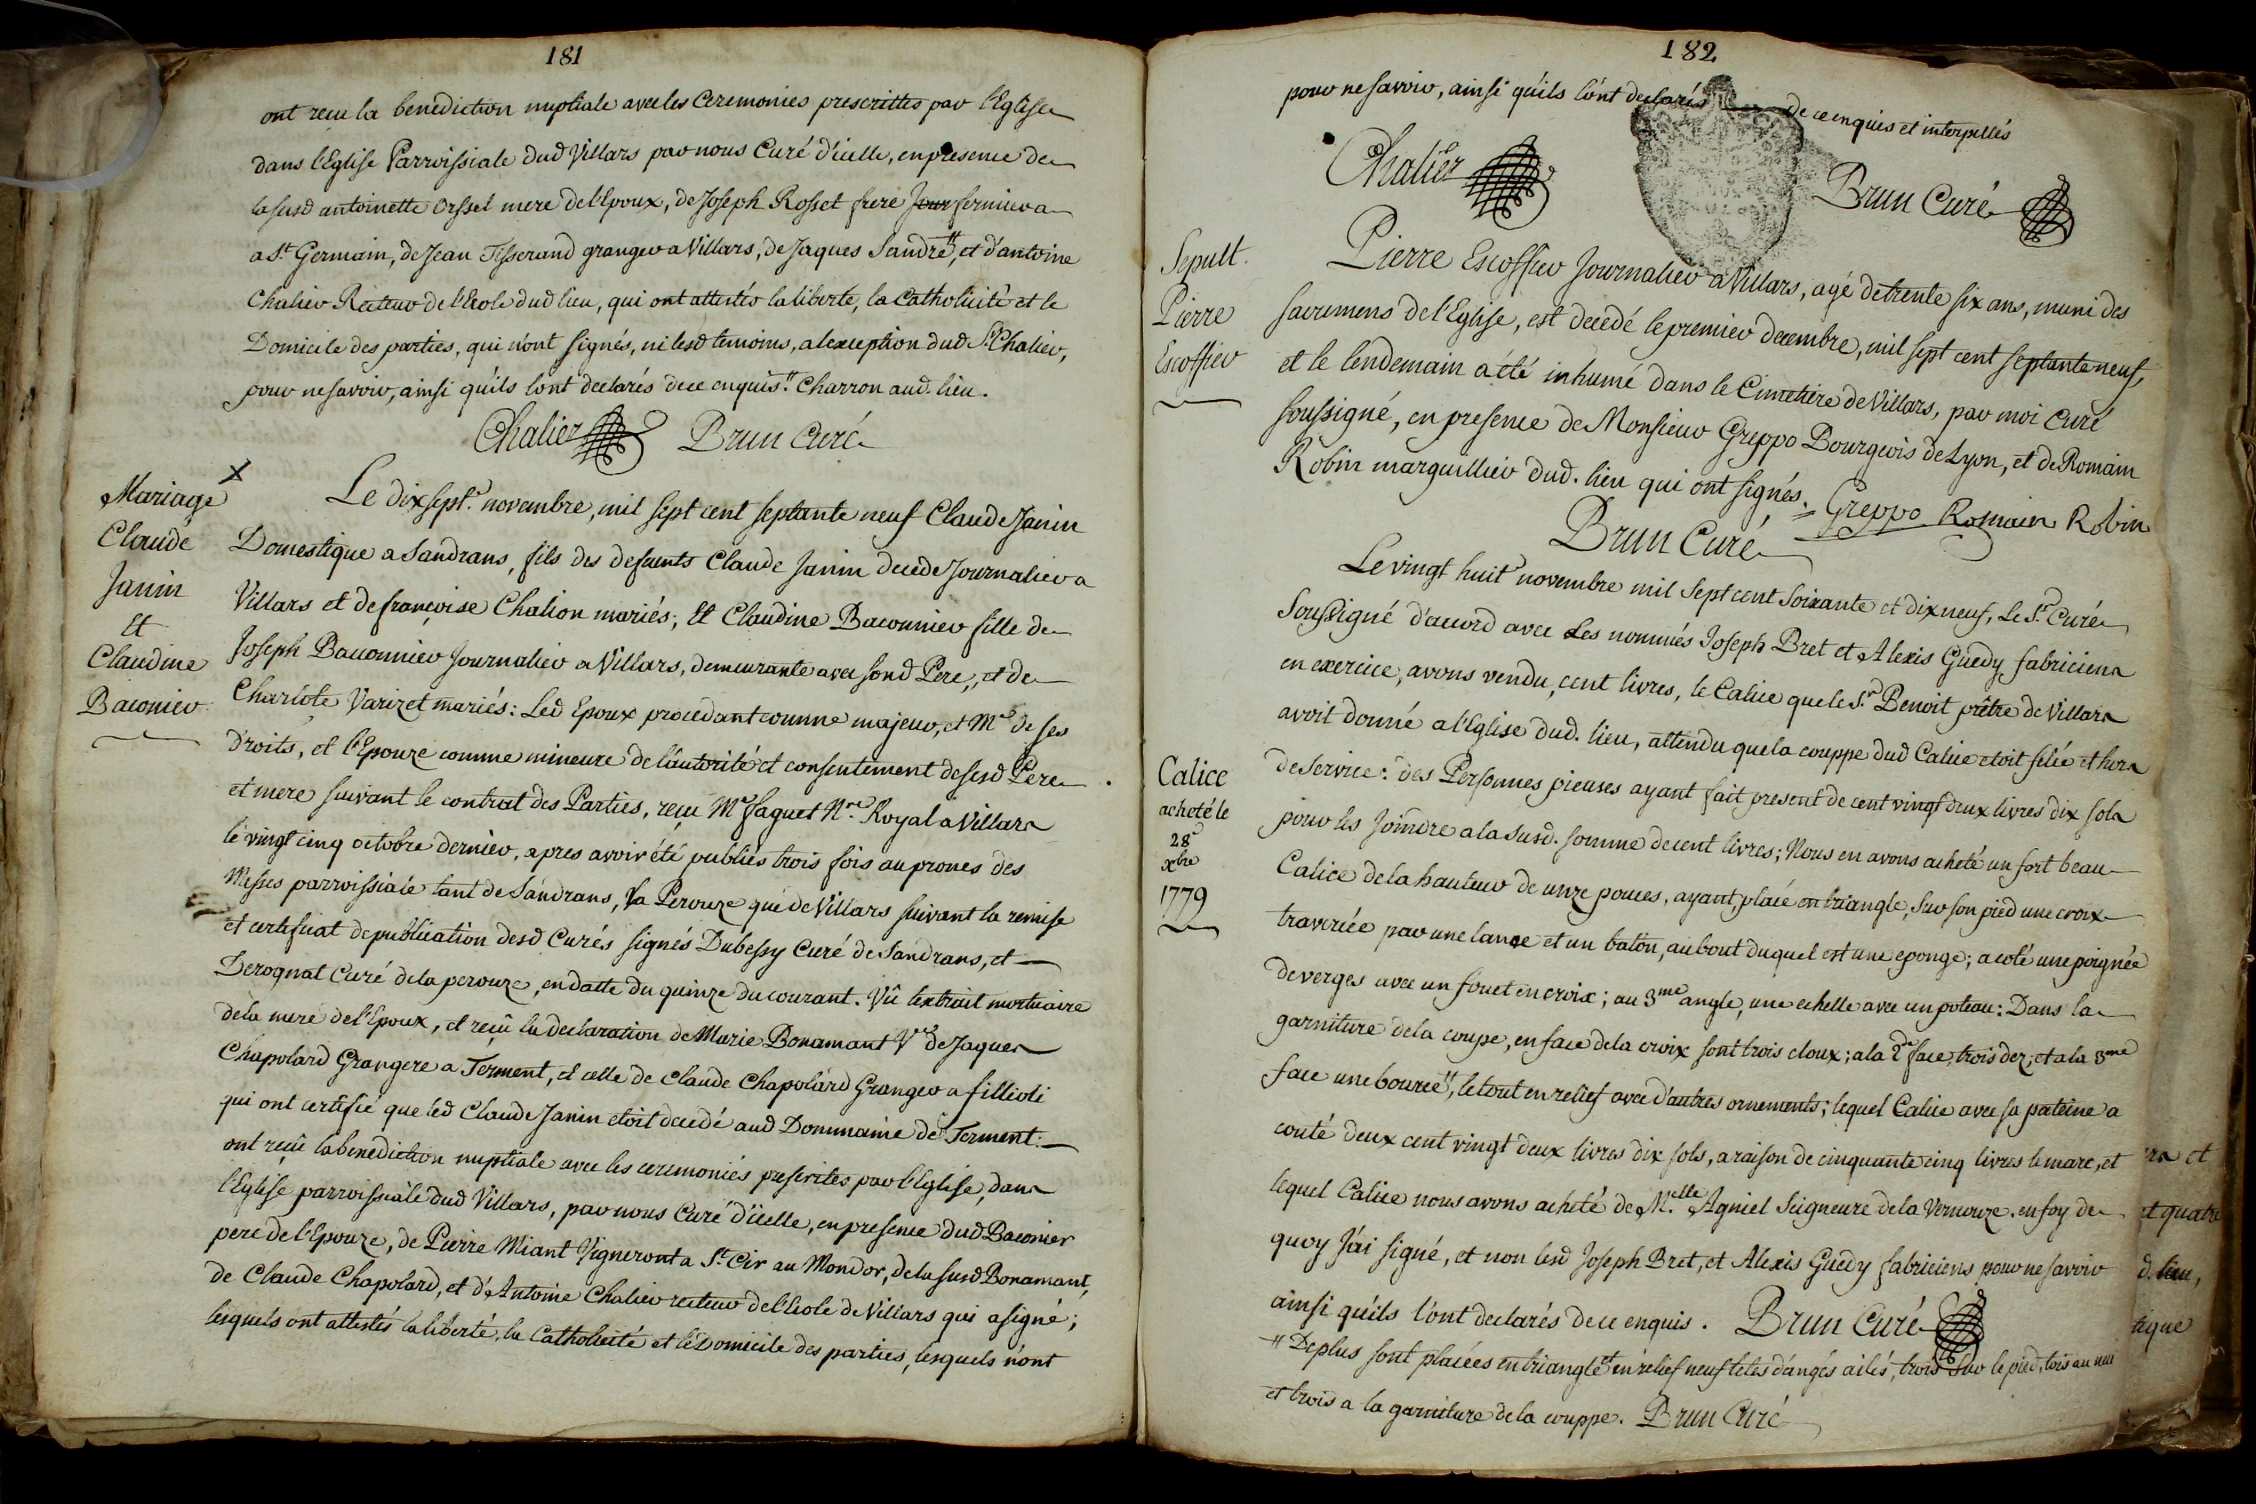 181
ont reçu la benediction nuptiale avec les Ceremonies prescrittes par l'Eglise
dans l'Eglise Parroissiale dud Villars par nous Curé d'icelle, en presence de
la susd antoinette Orssel mere de l'Epoux, de Joseph Rosset frere Jour fermier a
a St. Germain, de Jean Tisserand granger a Villars, de Jaques Sandre", et d'antoine
Chalier Recteur de l'Ecole dud lieu, qui ont attestés la liberté, la Catholicité et le
Domicile des parties, qui n'ont signés, ni lesd temoins, a lexception dud Sr. Chalier,
pour ne savoir, ainsi qu'ils lont declarés de ce enquis." Charron aud. lieu.
Chalier Brun Curé
Mariage
Claude
Janin
Et
Claudine
Baconier
X
Le dix sept. novembre, mil sept cent septante neuf Claude Janin
Domestique a Sandrans, fils des defunts Claude Janin decedé Journalier a
Villars et de françoise Chalion mariés; Et Claudine Baconnier fille de
Joseph Baconnier Journalier a Villars, demeurante avec sond Pere, et de
Charlote Varizet mariés: Led Epoux procedant comme majeur, et Me de ses
Droits, et l'Epouze comme mineure de l'autorité et consentement de sesd Pere
et mere suivant le contrat des Parties, reçu Me faguet Nre. Royal a Villars
le vingt cinq octobre dernier, apres avoir été publiés trois fois au prones des
Messes parroissiale tant de Sandrans, La Perouze que de Villars suivant la remise
et certificat de publication desd Curés signés Dubessy Curé de Sandrans, et
Derognat Curé de la perouze, en datte du quinze du courant. Vû lextrait mortuaire
de la mere de l'Epoux, et reçû la declaration de Marie Bonamant Ve de Jaques
Chapolard Grangere a Terment, et celle de Claude Chapolard Granger a fillioli
qui ont certifié que led Claude Janin etoit decedé aud Dommaine de Terment:
ont reçû la benediction nuptiale avec les ceremonies prescrites par l'Eglise, dans
l'Eglise parroissiale dud Villars, par nous Curé d'icelle, en presence dud Baconier
pere de l'Epouze, de Pierre Miant Vigneront a St. Cir au Mondor, de la susd Bonamant,
de Claude Chapolard, et d'Antoine Chalier recteur de l'Ecole de Villars qui a signé;
lesquels ont attestés la liberté, la Catholicité et le Domicile des parties, lesquels n'ont
182
pour ne savoir, ainsi qu'ils lont declarés de ce enquis et interpellés
Chalier Brun Curé
Sepult.
Pierre
Escoffier
Pierre Escoffier Journalier a Villars, agé de trente six ans, muni des
sacremens de l'Eglise, est decedé le premier decembre, mil sept cent septante neuf,
et le lendemain a été inhumé dans le Cimetière de Villars, par moi Curé
soussigné, en presence de Monsieur Greppo Bourgeois de Lyon, et de Romain
Robin marguillier dud. lieu qui ont signés. Greppo Romain Robin
Brun Curé
Calice
acheté le
28
xbre
1779
Le vingt huit novembre mil sept cent soixante et dix neuf, Le Sr. Curé
Soussigné d'accord avec Les nommés Joseph Bret et Alexis Guedy fabriciens
en exercice, avons vendu, cent livres, le Calice que le Sr. Benoit prêtre de Villars
avoit donné a l'Eglise dud. lieu, attendu que la couppe dud Calice etoit félée et hors
de Service: des Personnes pieuses ayant fait present de cent vingt deux livres dix sols
pour les Joindre a la susd. somme de cent livres; Nous en avons acheté un fort beau
Calice de la hauteur de unze pouces, ayant, placé en triangle, Sur son pied une croix
traversée par une lance et un batôn, au bout duquel est une eponge; a coté une poignée
de verges avec un fouet en croix; au 3me angle, une echelle avec un poteau: Dans la
garniture de la coupe, en face de la croix sont trois cloux; a la 2de face, trois dez; et a la 3me
face une bource", le tout en relief avec d'autres ornements; lequel Calice avec sa pateine a
couté deux cent vingt deux livres dix sols, a raison de cinquante cinq livres le marc, et
lequel Calice nous avons acheté de Melle. Agniel Seigneure de la Vernouze. en foy de
quoy J'ai signé, et non lesd Joseph Bret, et Alexis Guedy fabriciens pour ne savoir
ainsi qu'ils l'ont declarés de ce enquis. Brun Curé
" De plus sont placées en triangle et en relief neuf tetes d'anges ailés, trois sur le pied, trois au
et trois a la garniture de la couppe. Brun Curé
et
et quatre
d. lieu,
tique